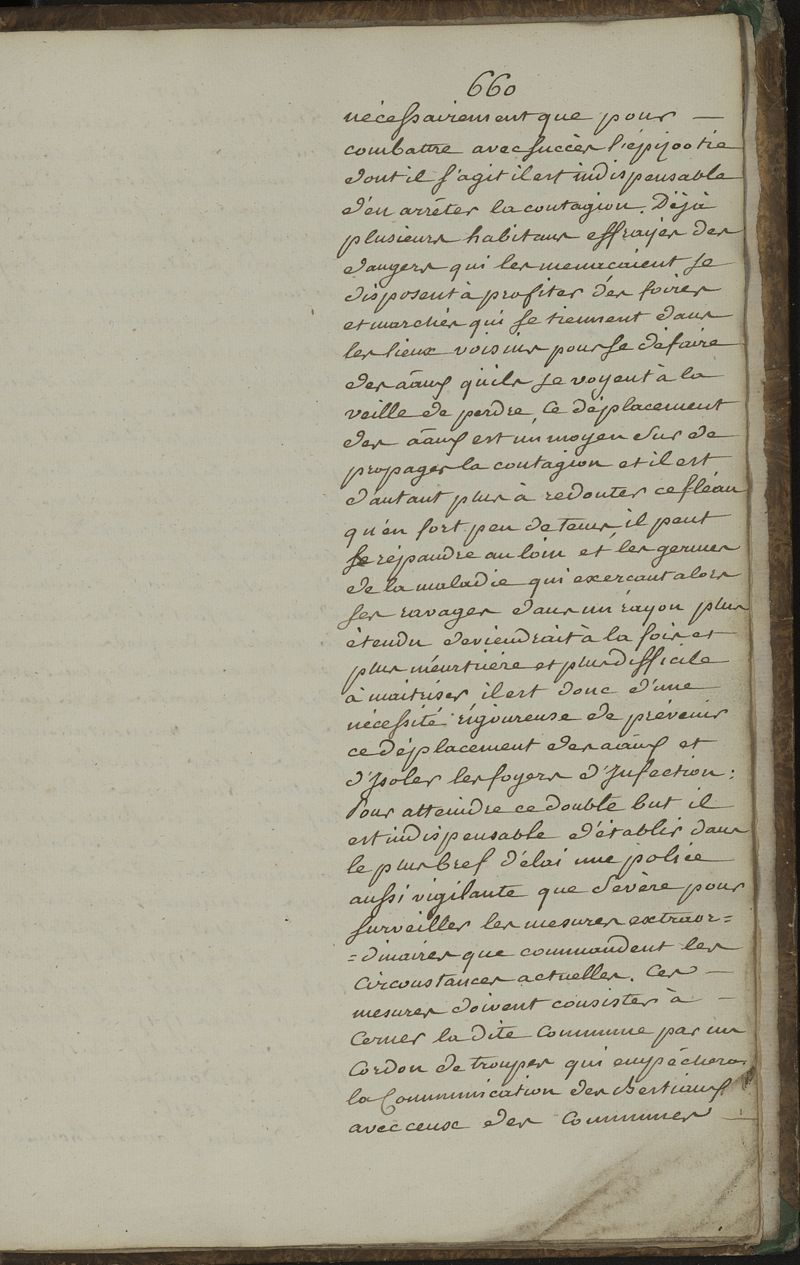 660
nécessairement que pour —
combattre avec succès l'épizootie
dont il s'agit il est indispensable
d'en arrêter la contagion. Déjà
plusieurs habitans effrayés des
dangers qui les menaçaient se
disposent à profiter des foires
et marchés qui se tiennent dans
les lieux voisins pour se défaire
des aãux qu'ils se voyent à la
veille de perdre, Ce déplacement
des aãux est un moyen sur de
propager la contagion et il est
d'autant plus à redouter ce fléau
qu'en fort peu de tems il peut
se répandre au loin et les germes
de la maladie qui exerçant alors
ses ravages dans un rayon plus
étendu deviendrait à la fois et
plus meurtrière et plus difficile
à maitriser il est donc d'une
nécessité rigoureuse de prévenir
ce déplacement des aãux et
d'Isoler les foyers d'Infection :
Pour atteindre ce double but il
est indispensable d'établir dans
le plus bref délai une police
aussi vigilante que sévère pour
surveiller les mesures extraor=
=dinaires que commandent les
Circonstances actuelles. Ces —
mesures doivent consister à —
Cerner la dite Commune par un
Cordon de troupes qui empêchera
la Communication des Bestiaux
avec ceux des Communes —